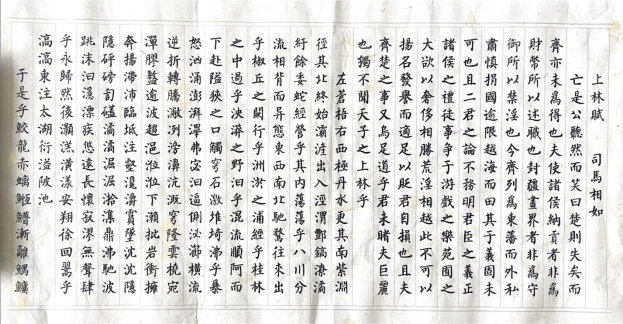 上林賦　司馬相如
亡是公听然而笑曰楚則失矣而
齊亦未為得也夫使諸侯納貢者非為
財幣所以述職也封疆畫界者非為守
御所以禁淫也今齊列為東藩而外私
肅慎捐國逾限越海而田其于義固未
可也且二君之論不務明君臣之義正
諸侯之禮徒事爭于游戲之樂苑囿之
大欲以奢侈相勝荒淫相越此不可以
揚名發譽而適足以貶君自損也且夫
齊楚之事又烏足道乎君未睹夫巨麗
也獨不聞天子之上林乎
左蒼梧右西極丹水更其南紫淵
徑其北終始灞滻出入涇渭酆鎬潦潏
紆餘委蛇經營乎其內蕩蕩乎八川分
流相背而异態東西南北馳騖往來出
乎椒丘之闕行乎洲淤之浦經乎桂林
之中過乎泱漭之野汩乎混流順阿而
下赴隘狹之口觸穹石激堆埼沸乎暴
怒洶涌澎湃滭弗宓汩逼側泌瀄橫流
逆折轉騰潎洌滂濞沆溉穹隆雲橈宛
潬膠盭逾波趨浥涖涖下瀨批岩衝擁
奔揚滯沛臨坻注壑瀺灂霣墜沈沈隱
隱砰磅訇礚潏潏淈淈湁潗鼎沸馳波
跳沫汩濦漂疾悠遠長懷寂漻無聲肆
乎永歸然後灝溔潢漾安翔徐回翯乎
滈滈東注太湖衍溢陂池
于是乎鮫龍赤螭䱭䲛漸離鰅鱅